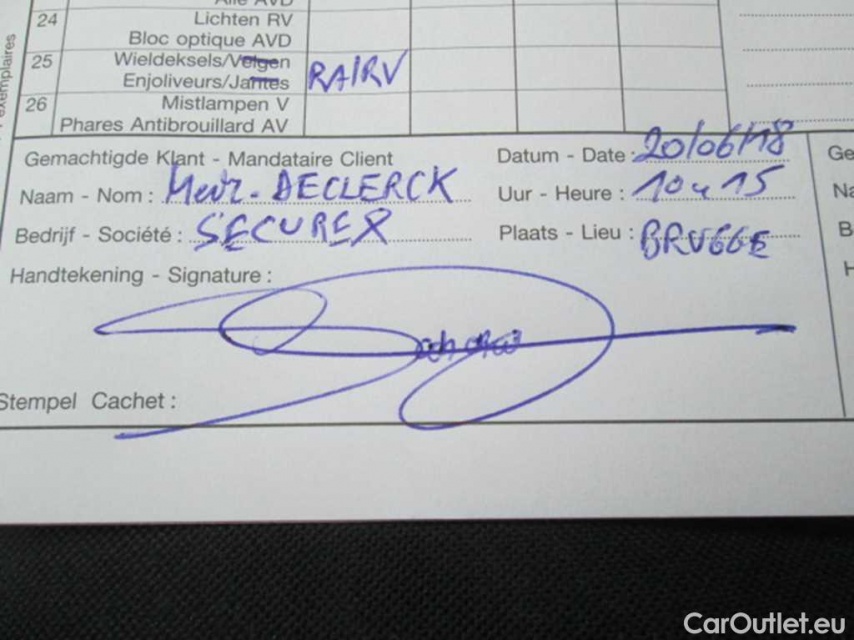 24 Lichten RV
Bloc optique AVD
25 Wieldeksels/Velgen
Enjoliveurs/Jantes RA/RV
26 Mistlampen V
Phares Antibrouillard AV
Gemachtigde Klant - Mandataire Client
Naam - Nom : Mevr. DECLERCK
Bedrijf - Société : SECUREX
Handtekening - Signature :
Stempel Cachet :
Datum - Date : 20/06/18
Uur - Heure : 10u15
Plaats - Lieu : BRUGGE
Ge
Na
B
H
exemplaires
CarOutlet.eu